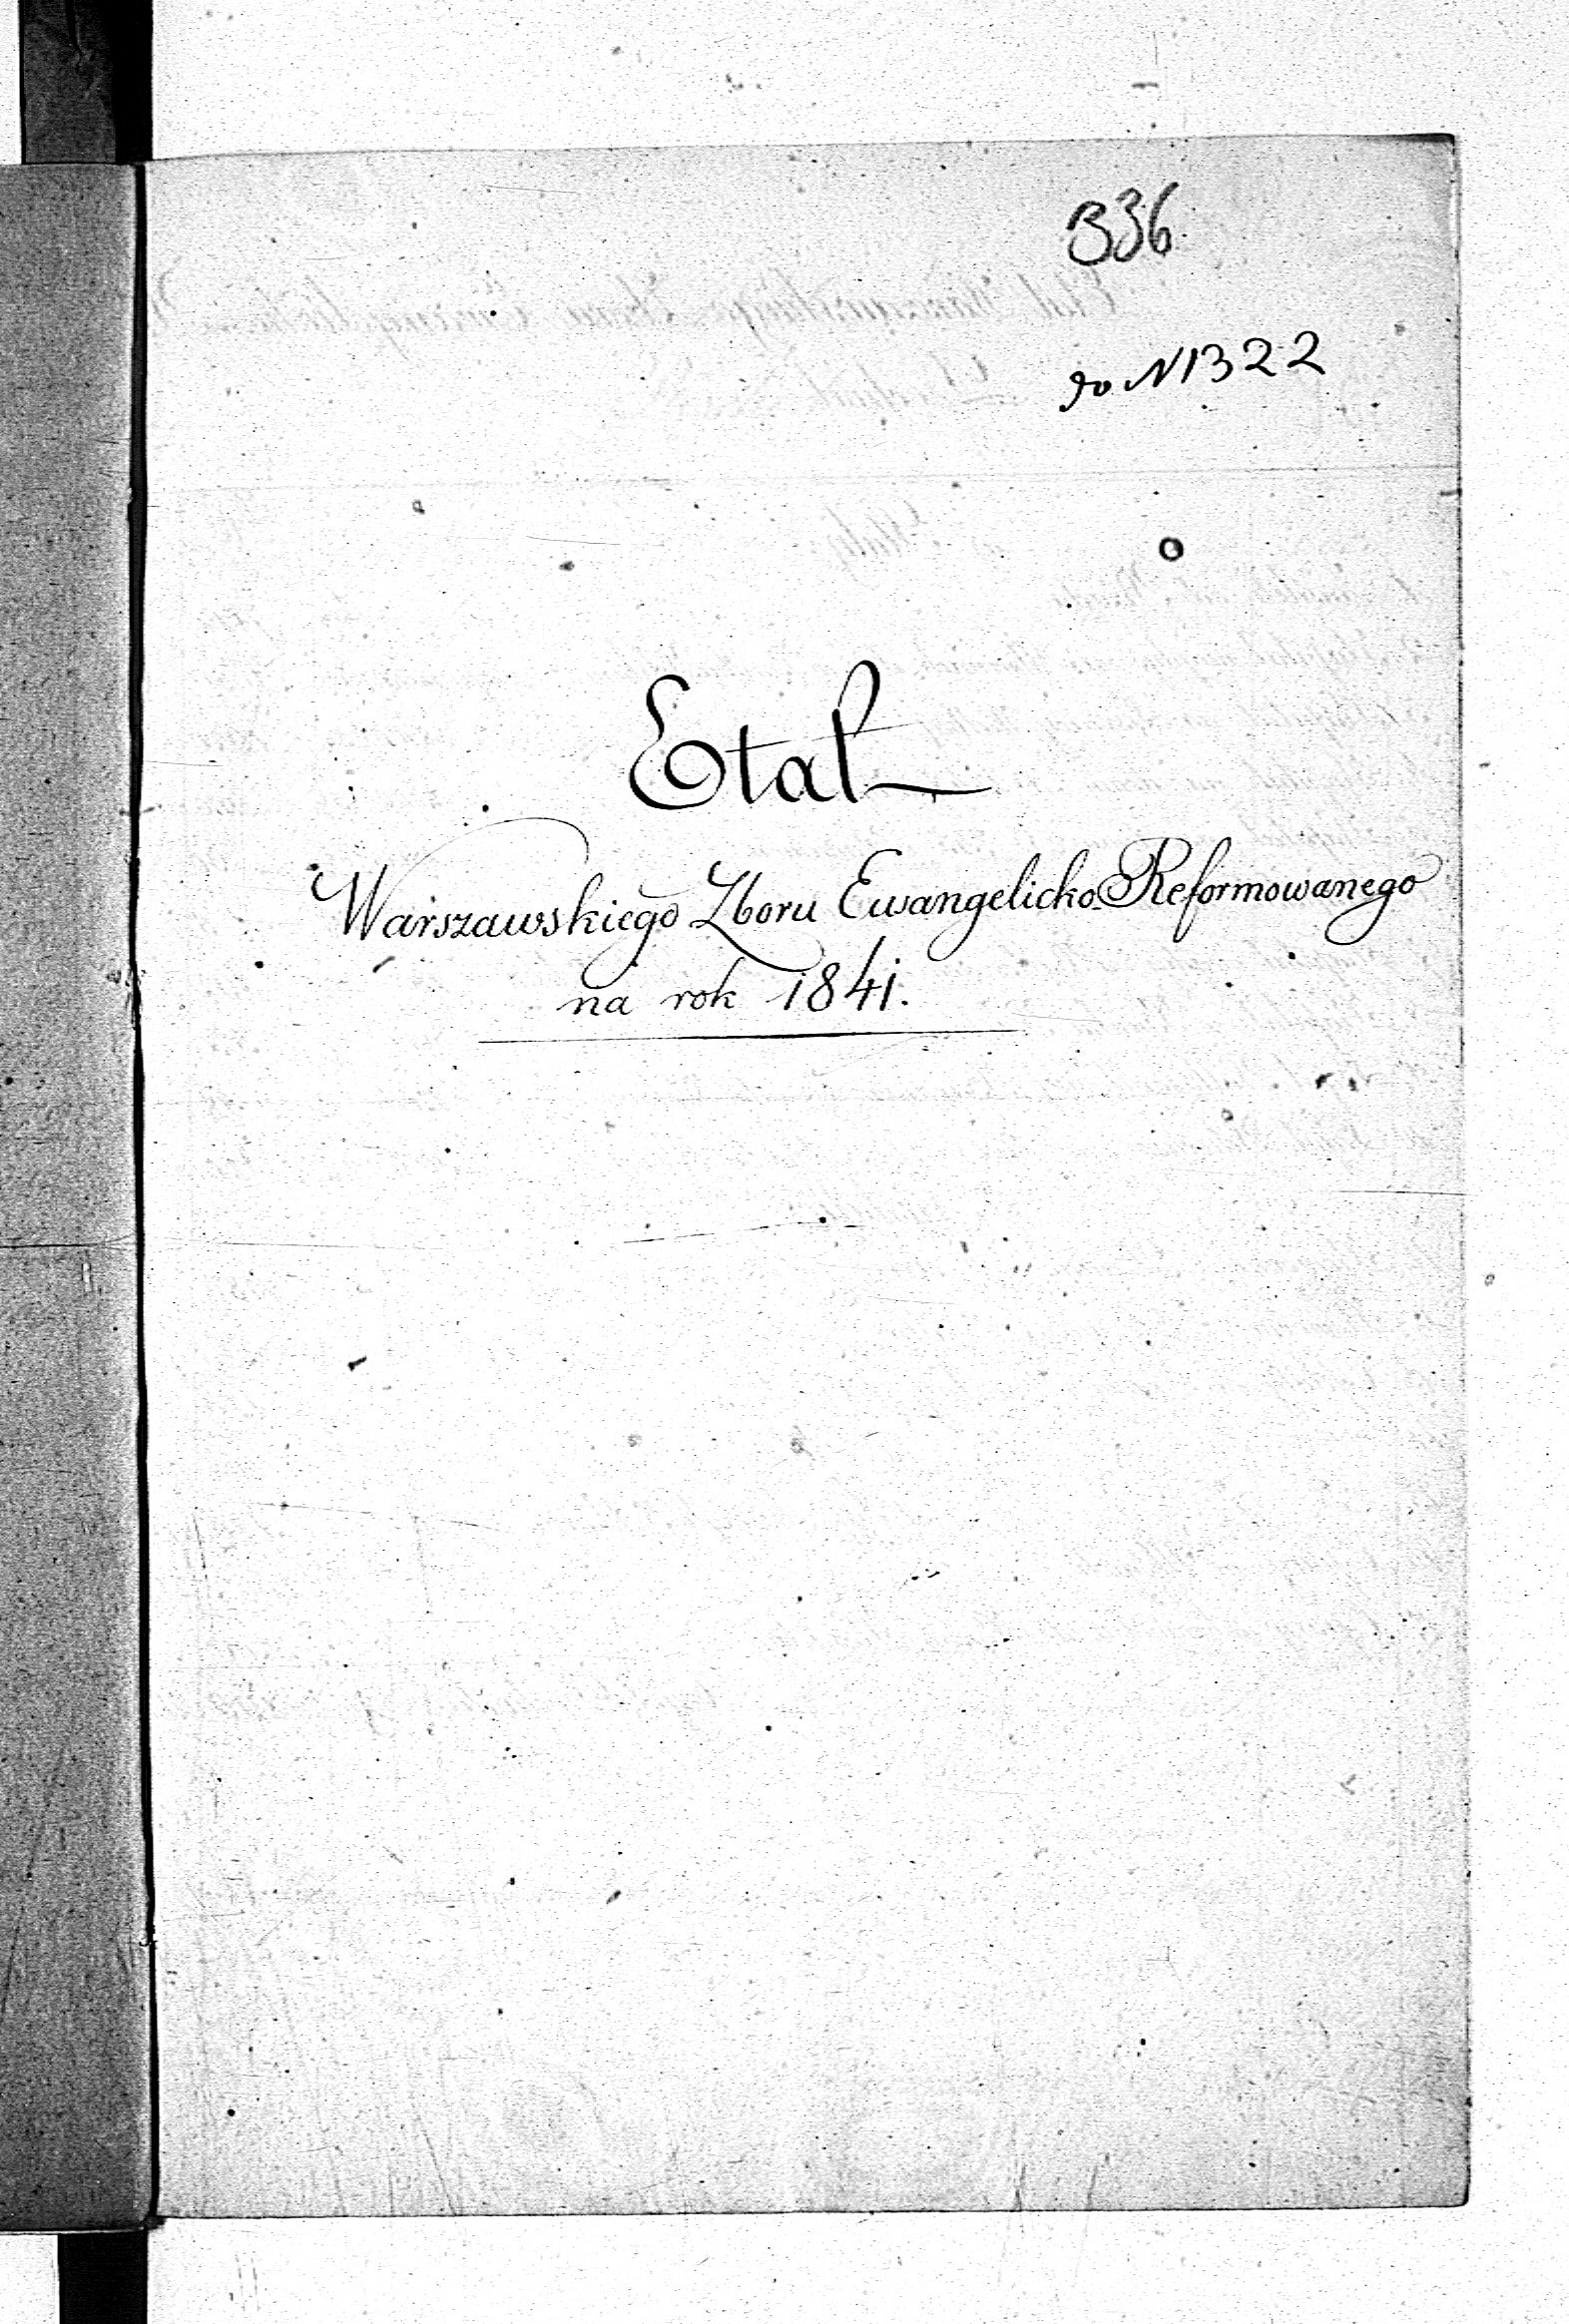 336
do N 1322
Etat
Warszawskiego Zboru Ewangelicko-Reformowanego
na rok 1841.